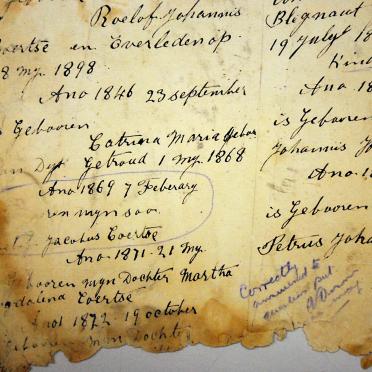 Roelof Johannis
Coertse en Everledenop
8 My. 1898
Ano 1846 23 september
Gebooren
Catrina Maria Gebor
Dyt Getroud 1 My. 1868
Ano 1869 7 Feberary
myn soo
Jacobus Coertse
Ano 1871-21 My.
booren myn Dochter Martha
dalena Coertse
Ano1 1872 19 october
Gebooren myn Dochter
Blegnaut
19 July 18
Kind
Ano 18
is Gebooren
Johannis Jo
Ano. 18
is Gebooren
Petrus Joha
Correctly